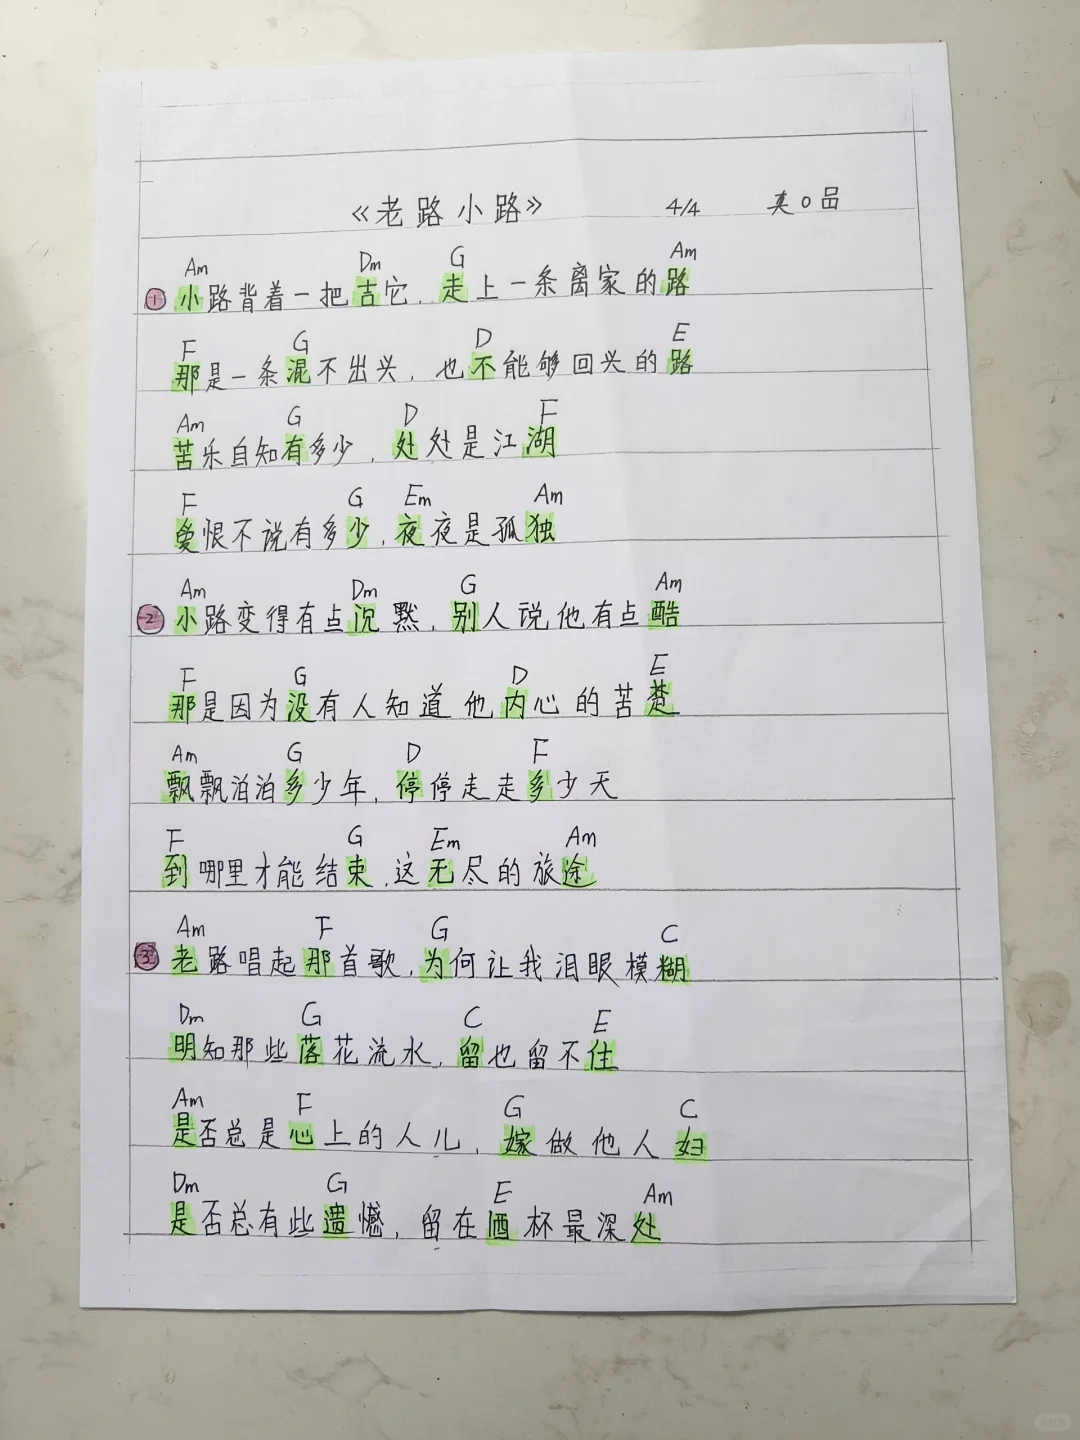 《老路小路》 4/4 夹0品
Am Dm G Am
① 小路背着一把吉它，走上一条离家的路
F G D E
那是一条混不出头，也不能够回头的路
Am G D F
苦乐自知有多少，处处是江湖
F G Em Am
爱恨不说有多少，夜夜是孤独
Am Dm G Am
② 小路变得有点沉默，别人说他有点酷
F G D E
那是因为没有人知道他内心的苦楚
Am G D F
飘飘泊泊多少年，停停走走多少天
F G Em Am
到哪里才能结束，这无尽的旅途
Am F G C
③ 老路唱起那首歌，为何让我泪眼模糊
Dm G C E
明知那些落花流水，留也留不住
Am F G C
是否总是心上的人儿，嫁做他人妇
Dm G E Am
是否总有些遗憾，留在酒杯最深处